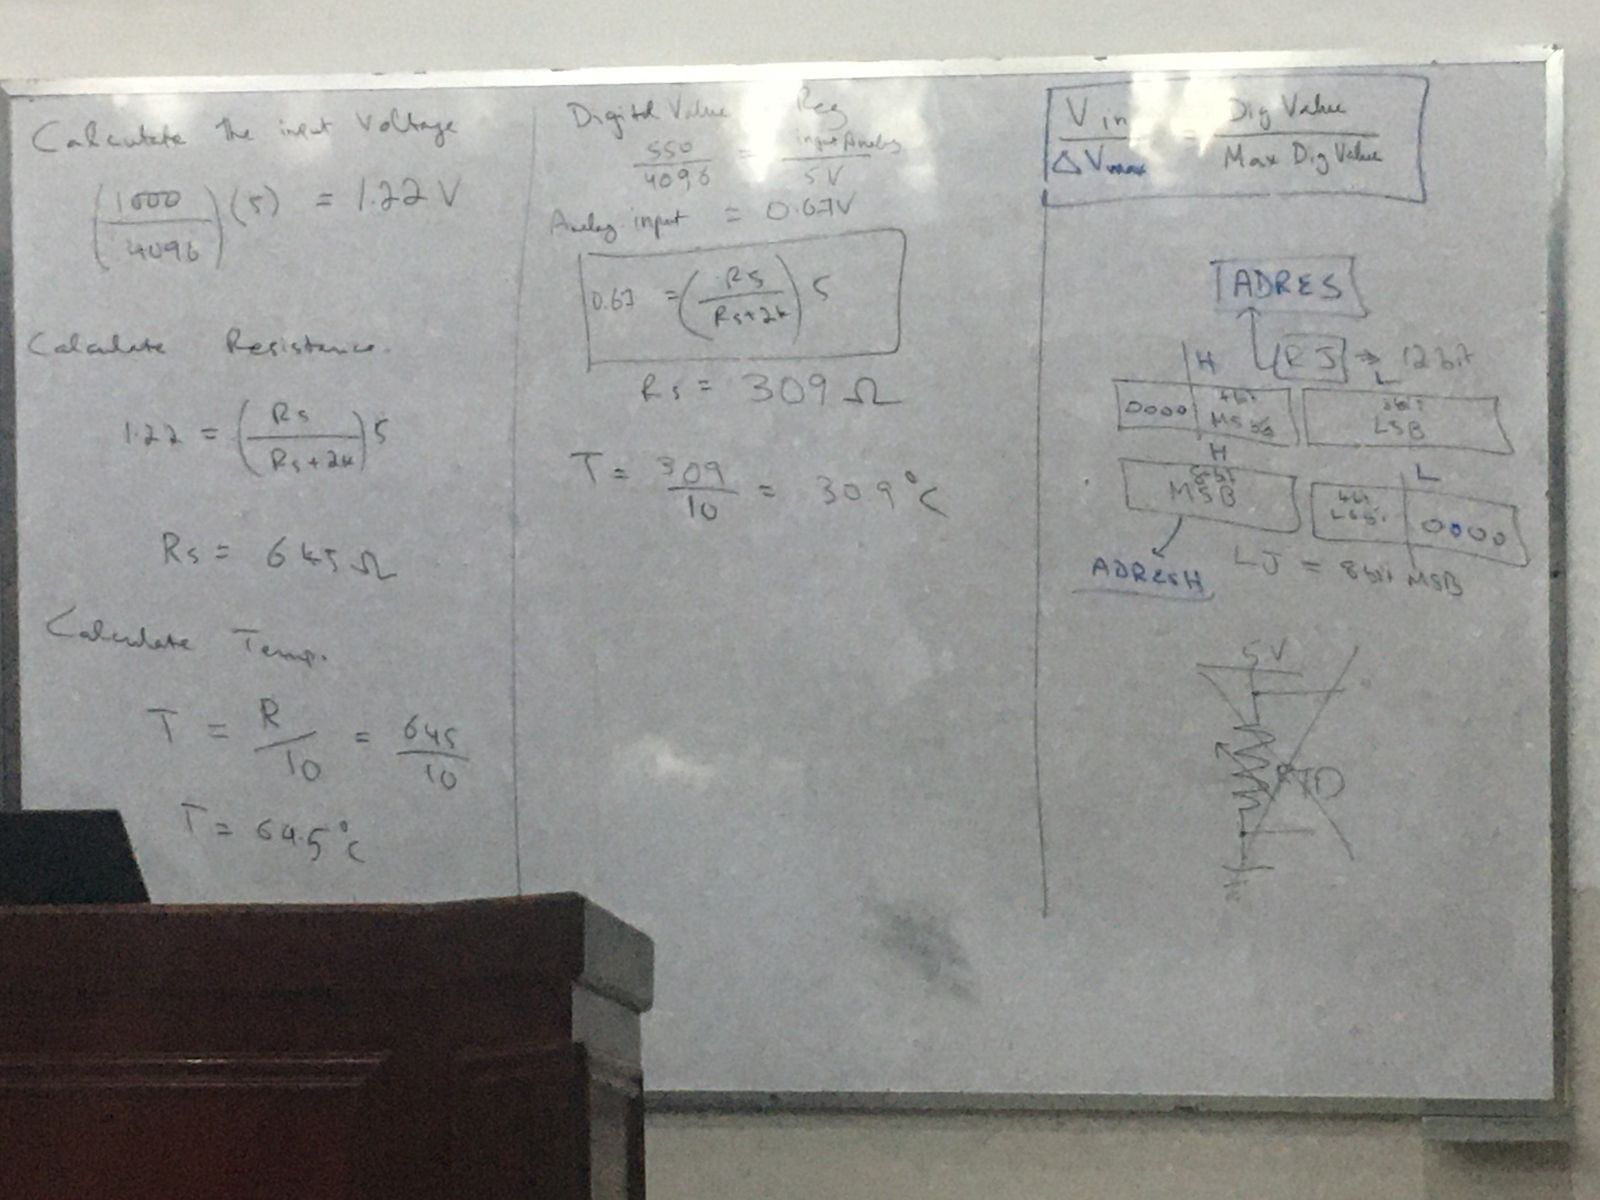 Calculate the input Voltage
(1000/4096)(5) = 1.22 V
Calculate Resistance.
1.22 = (Rs/Rs+2k)5
Rs = 645 Ω
Calculate Temp.
T = R/10 = 645/10
T = 64.5°C
Digital Value Reg
550/4096 = input Analog/5V
Analog input = 0.67V
0.67 = (Rs/Rs+2k) 5
Rs = 309 Ω
T = 309/10 = 30.9°C
Vin/ΔVmax = Dig Value/Max Dig Value
ADRES
H RJ → 12 bit
L
0000 4bit MSB 8bit LSB
H L
8bit MSB 4bit LSB 0000
ADRESH LJ = 8bit MSB
5V
RTD